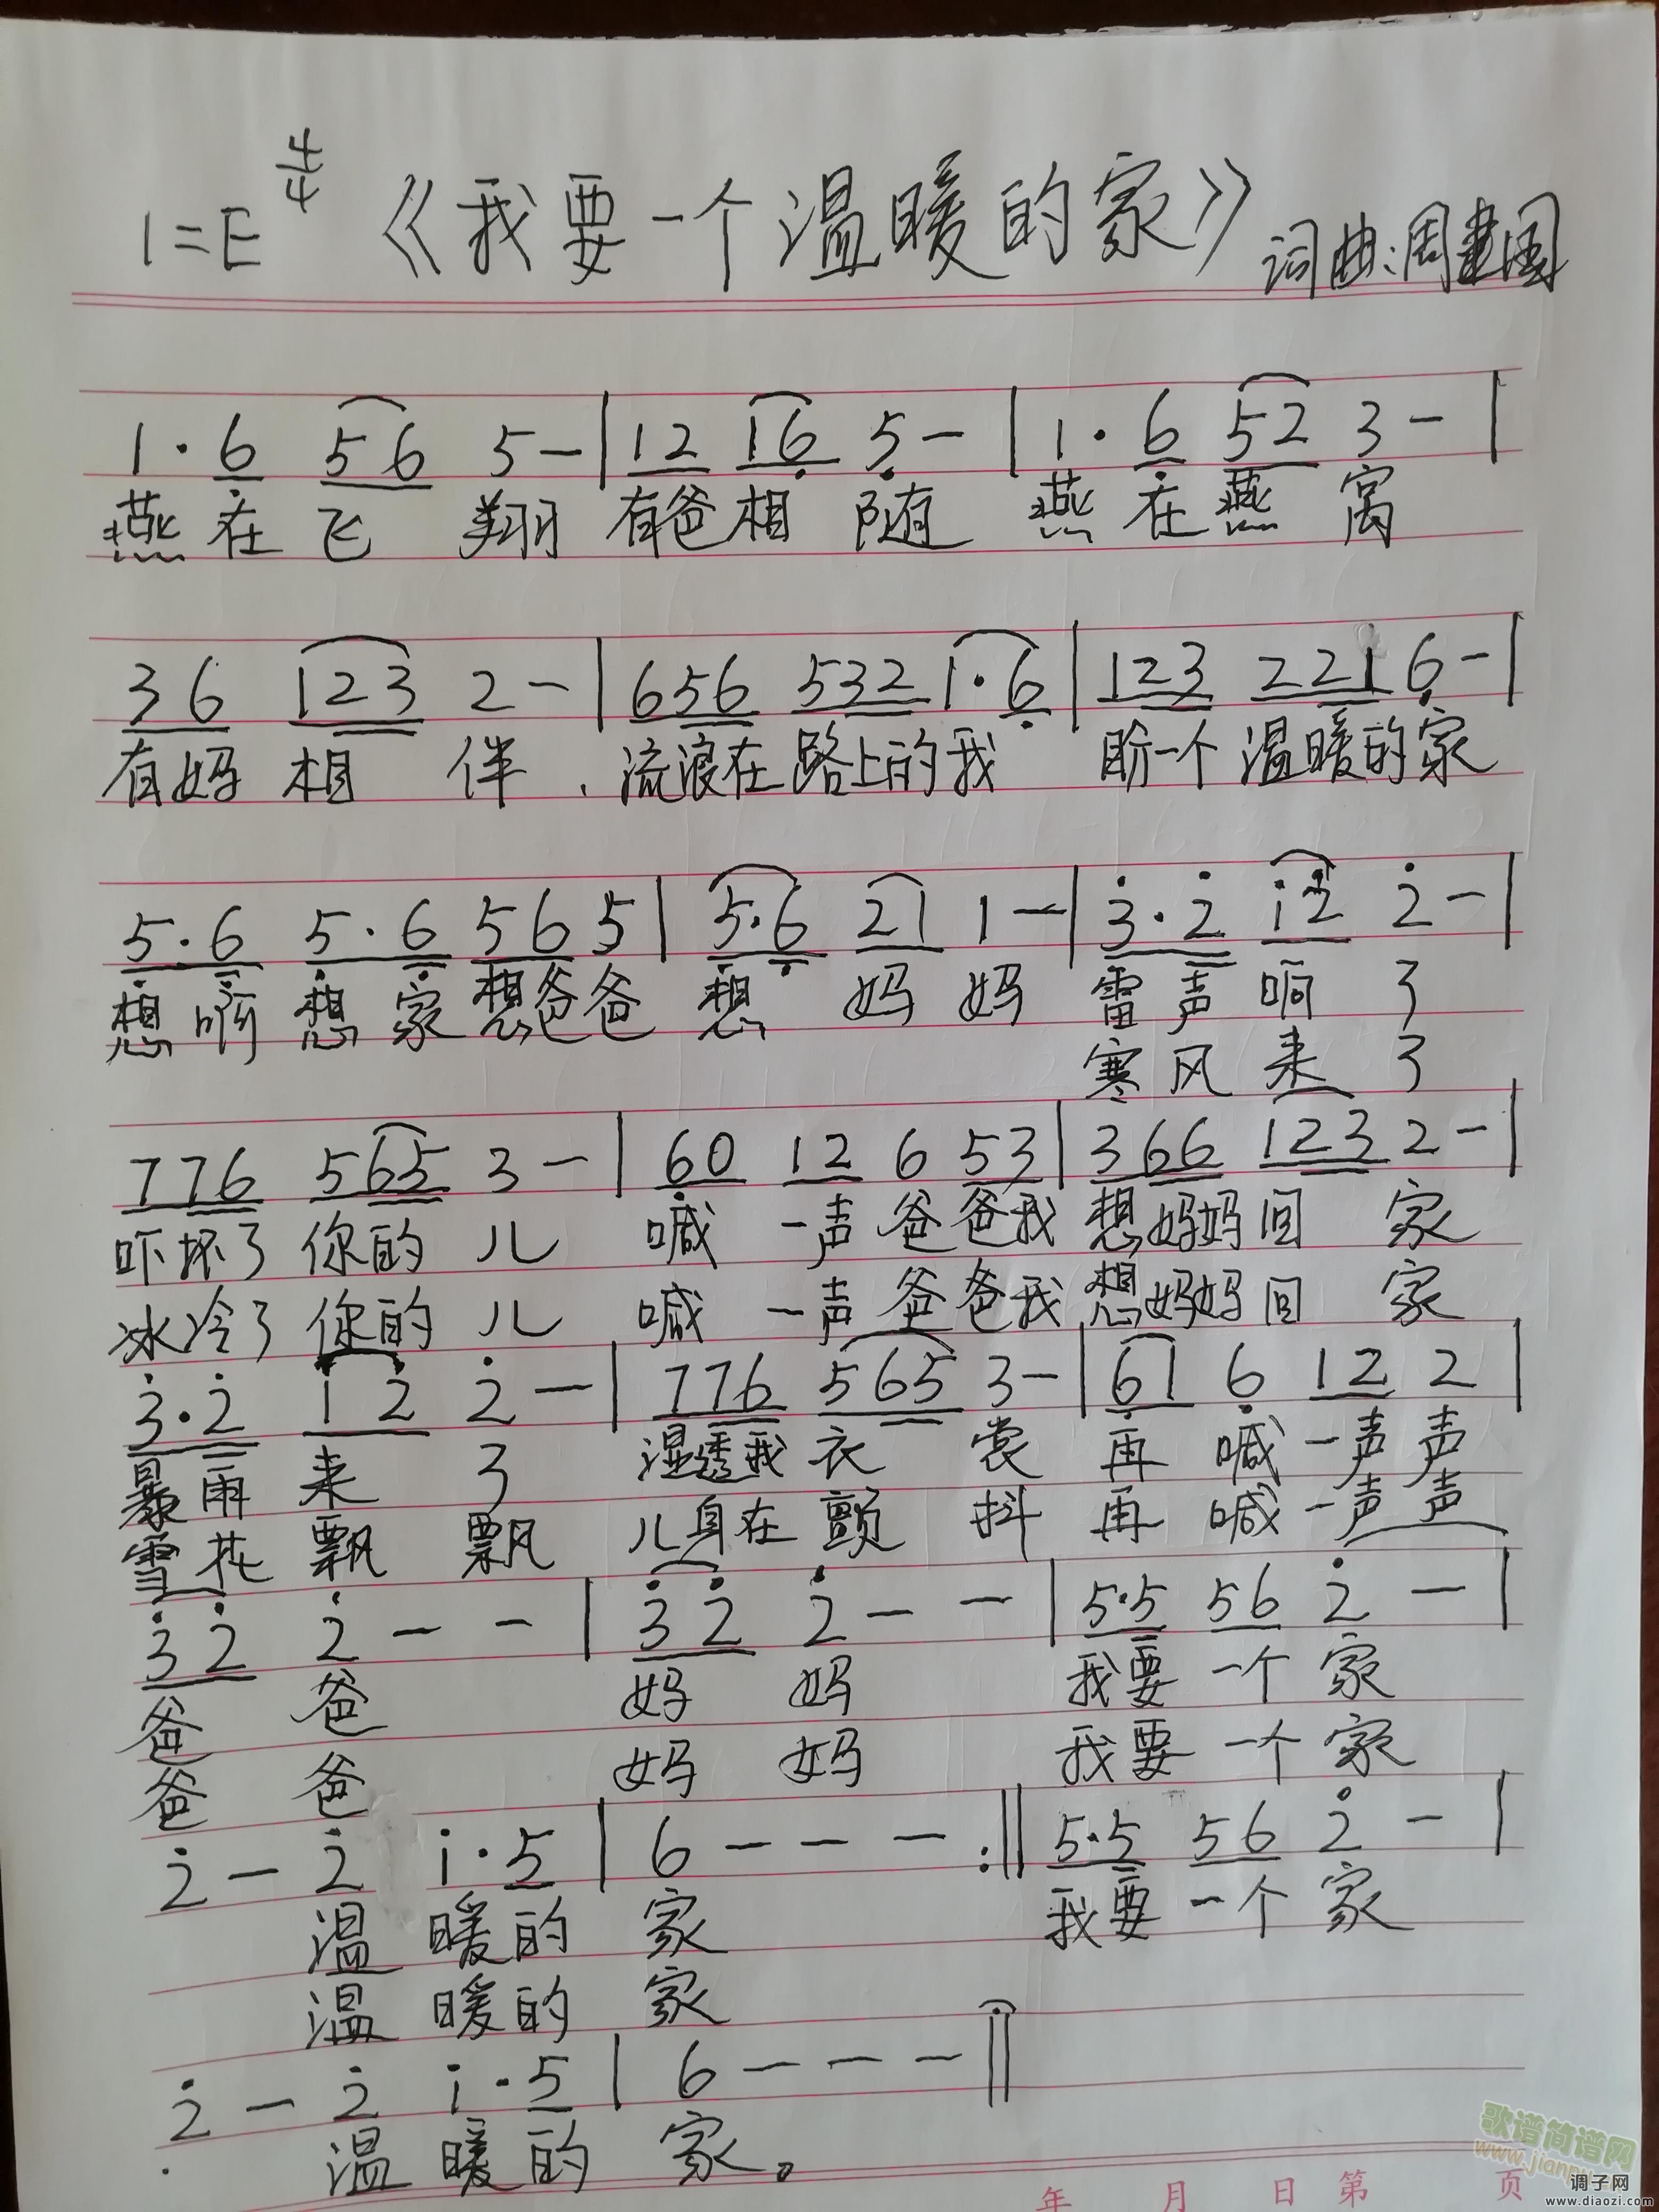 1=E 4/4 《我要一个温暖的家》 词曲:周建国
1·6 56 5-|12 16 5-|1·6 52 3-|
燕在飞 翔 有爸相 随 燕在燕 窝
36 123 2-|656 532 1·6|123 221 6-|
有妈相 伴 . 流浪在路上的我 盼一个温暖的家
5·6 5·6 56 5|5·6 21 1-|3·2 12 2-|
想啊想家想爸爸 想 妈 妈 雷声响 了
寒风来 了
776 565 3-|60 12 6 53|366 123 2-|
吓坏了你的儿 喊 一声爸爸我想妈妈回 家
冰冷了你的儿 喊 一声爸爸我想妈妈回 家
3·2 12 2-|776 565 3-|61 6 12 2|
暴雨来 了 湿透我衣 裳 再 喊一声声
雪花飘 飘 儿身在颤 抖 再 喊一声声
32 2--|32 2--|5·5 56 2-|
爸 爸 妈 妈 我要一个家
爸 爸 妈 妈 我要一个家
2-2 1·5|6---:||5·5 56 2-|
温 暖的 家 我要一个家
温 暖的 家
2-2 1·5|6---||
温 暖的 家。
年 月 日 第 页
歌谱简谱网
www.jianpu
调子网
www.diaozi.com